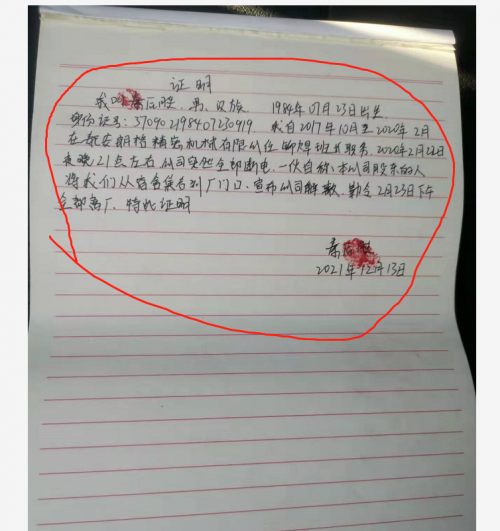 证明
我叫 应胜,男,汉族 1984年07月23日出生
身份证号:370902198407230919 我自2017年10月至2020年2月
在泰安 精密机械有限公司任铆焊班长职务。2020年2月22日
夜晚21点左右公司突然全部断电,一伙自称:本公司股东的人
将我们从宿舍集合到厂门口,宣布公司解散,勒令2月23日下午
全部离厂。特此证明
2021年12月13日